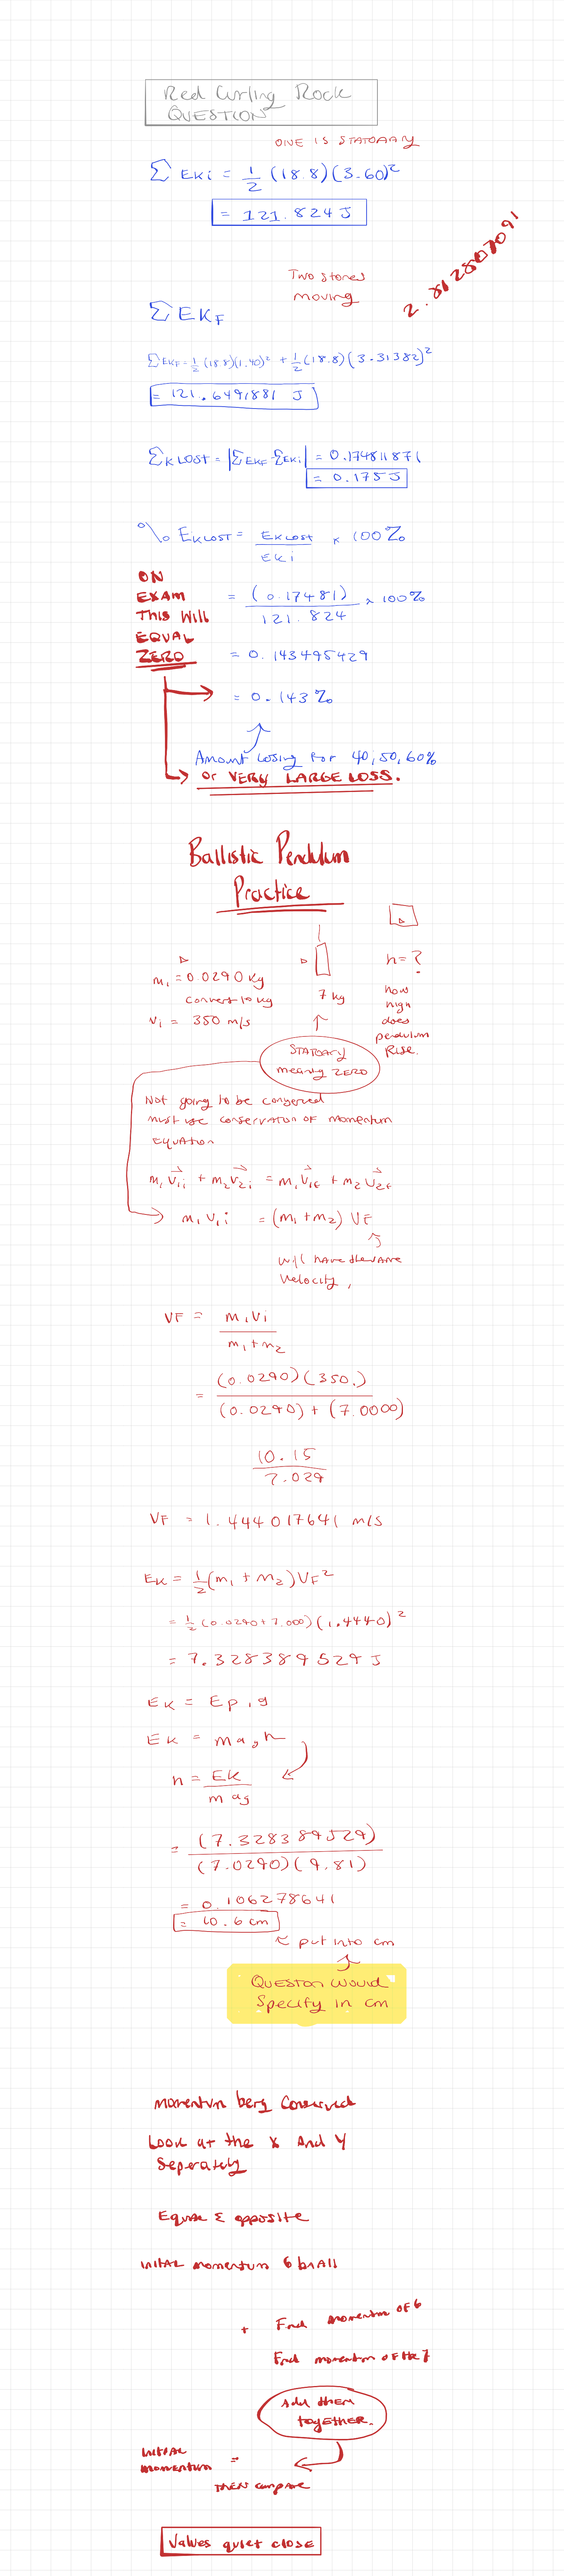 Red Curling Rock
QUESTION
ONE IS STATOARY
∑ EKi = 1/2 (18.8)(3.60)²
= 121.824 J
2.8128507091
Two stones
moving
∑ EKF
∑EKF = 1/2 (18.8)(1.40)² + 1/2 (18.8)(3.31382)²
= 121.6491881 J
∑K LOST = |∑EKF - ∑EKi| = 0.174811871
= 0.175 J
% EK LOST = EK LOST / EKi × 100%
ON
EXAM
This Will
EQUAL
ZERO
= (0.17481) / 121.824 × 100%
= 0.143495429
= 0.143 %
Amount losing for 40, 50, 60%
or VERY LARGE LOSS.
Ballistic Pendulum
Practice
m₁ = 0.0290 kg
convert to kg
V₁ = 350 m/s
7 kg
h = ?
how
high
does
pendulum
Rise.
STATOARY
meaning ZERO
Not going to be conserved
must use conservation of momentum
EQUATION
m₁ v⃗₁i + m₂ v⃗₂i = m₁ v⃗₁f + m₂ v⃗₂f
m₁ v₁i = (m₁ + m₂) VF
will have the same
velocity,
VF = m₁ vi / m₁ + m₂
= (0.0290)(350.) / (0.0290) + (7.0000)
10.15 / 7.029
VF = 1.444017641 m/s
EK = 1/2 (m₁ + m₂) VF²
= 1/2 (0.0290 + 7.000)(1.4440)²
= 7.328389529 J
EK = Ep,g
EK = m ag h
h = EK / m ag
= (7.328389529) / (7.0290)(9.81)
= 0.106278641
= 10.6 cm
put into cm
QUESTON WOULD
Specify in cm
momentum berg Conserved
Look at the X And Y
Seperately
Equal & opposite
initAL momentum 6 bAll
+ Find momentum of 6
Find momentum of the 7
Add them
together.
initAL
momentum =
THEN compare
Values quiet close